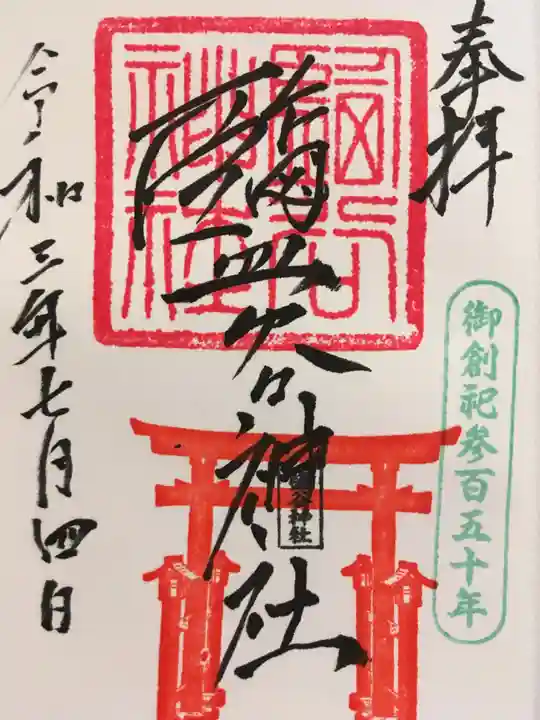 奉拝
御創祀参百五十年
鹽谷神社
令和三年七月四日